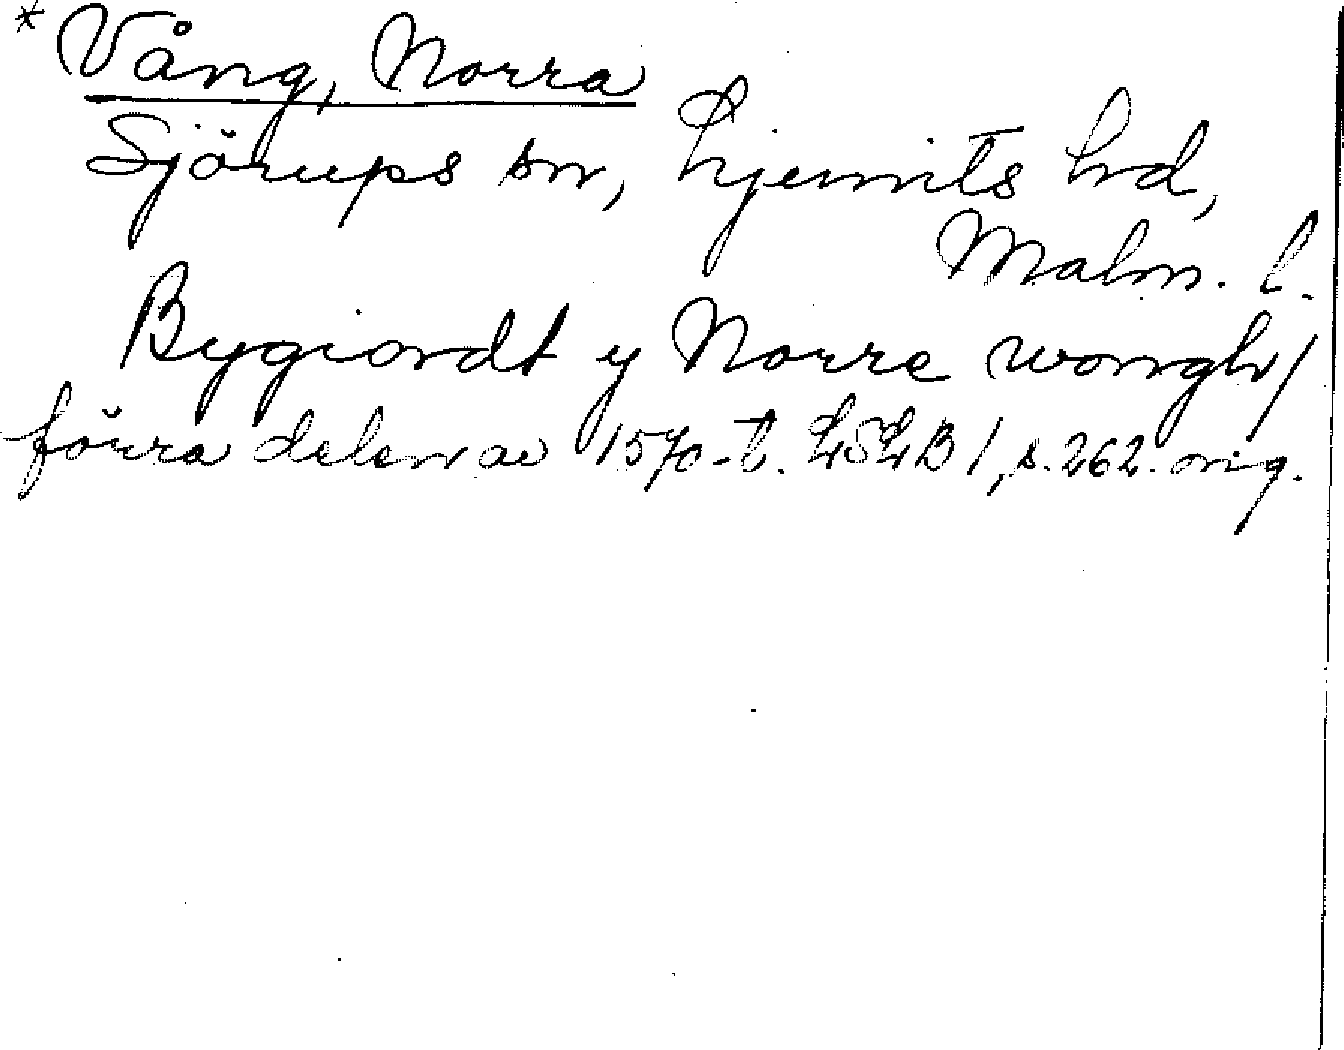 * Vång, Norra
Sjörups sn, Ljunits hd,
Malm. l.
Bygiordt y Norre wongh/
förra delen av 1570-t. LSLB 1, s. 262. orig.